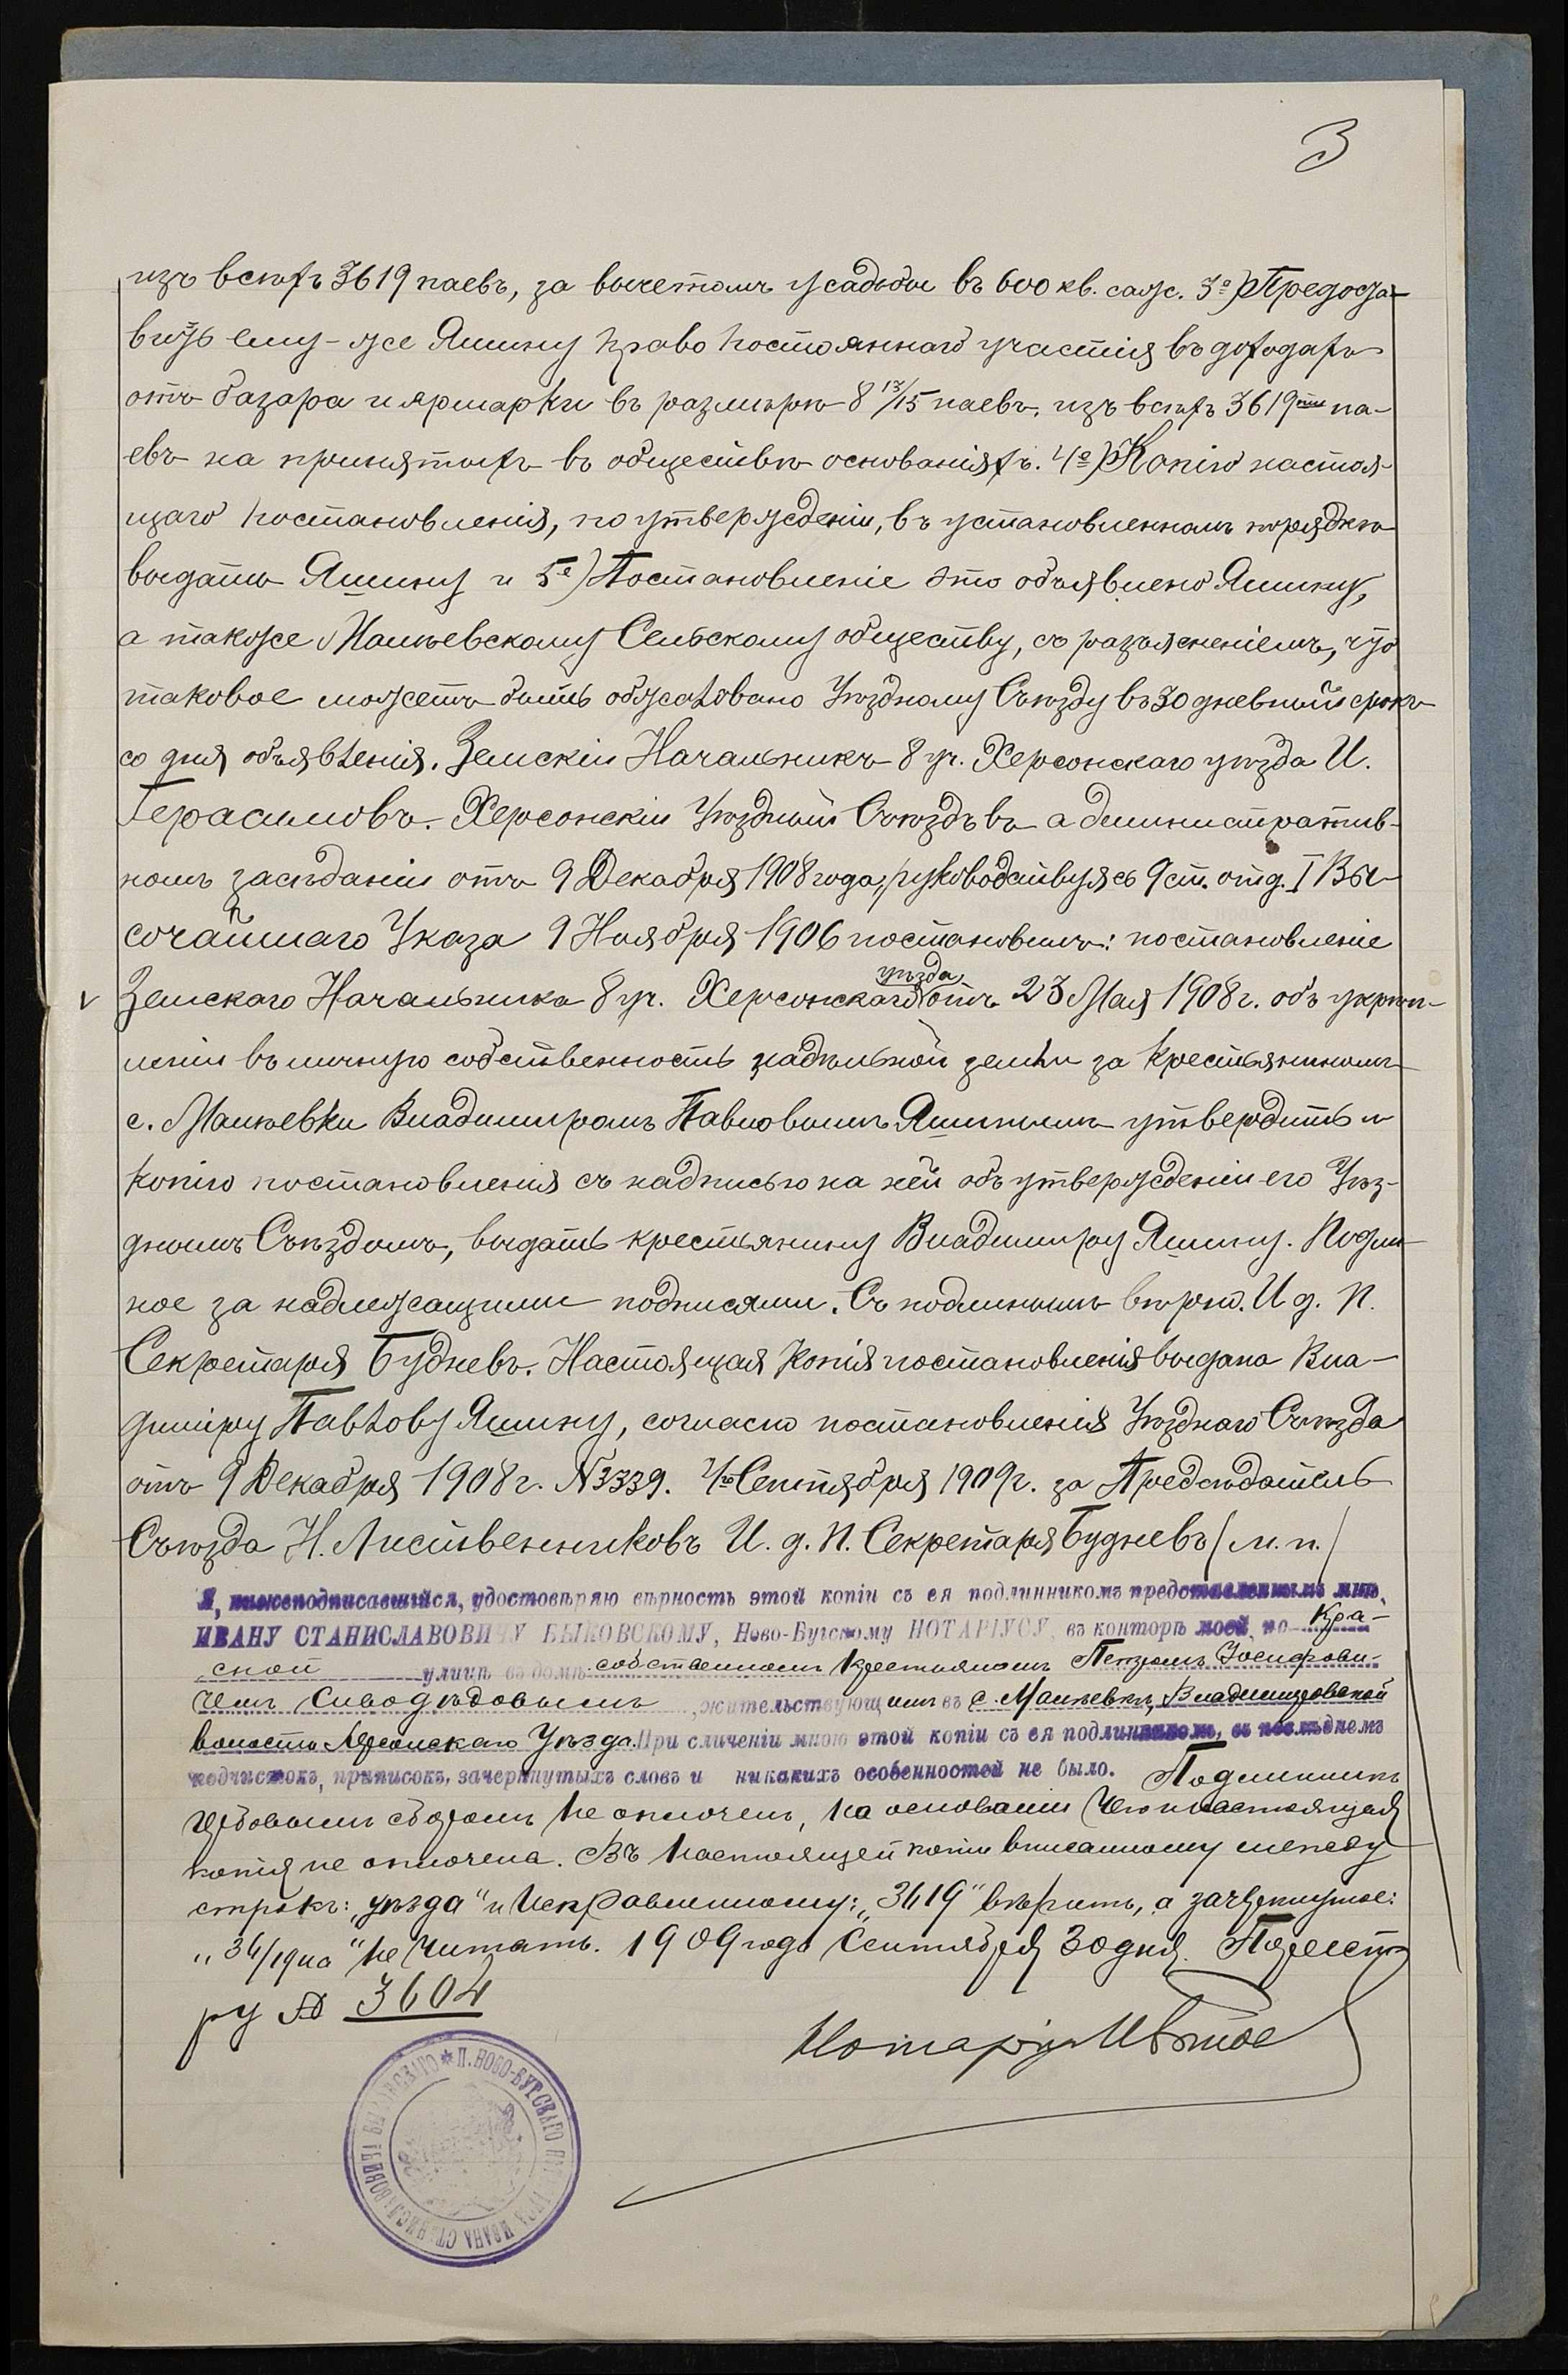 3
изъ всѣхъ 3619 паевъ, за вычетомъ усадьбы въ 600 кв. саж. 3е) Предоста-
вить ему-же Яшину право постояннаго участія въ доходахъ
отъ базара и ярмарки въ размѣрѣ 8 13/15 паевъ, изъ всѣхъ 3619ти па-
евъ на принятыхъ въ обществѣ основаніяхъ. 4е) Копію настоя-
щаго постановленія, по утвержденіи, въ установленномъ порядкѣ
выдать Яшину и 5е) Постановленіе это объявлено Яшину,
а также Манѣевскому Сельскому обществу, съ разъясненіемъ, что
таковое можетъ быть обжаловано Уѣздному Съѣзду въ 30 дневный срокъ
со дня объявленія. Земскій Начальникъ 8 уч. Херсонскаго уѣзда И.
Герасимовъ. Херсонскій Уѣздный Съѣздъ въ административ-
номъ засѣданіи отъ 9 Декабря 1908 года, руководствуясь 9 ст. отд. I Вы-
сочайшаго Указа 9 Ноября 1906 постановилъ: постановленіе
уѣзда,
v Земскаго Начальника 8 уч. Херсонскаго отъ 23 Мая 1908 г. объ укрѣп-
леніи въ личную собственность надѣльной земли за крестьяниномъ
с. Манѣевки Владимиромъ Павловымъ Яшинымъ утвердить и
копію постановленія съ надписью на ней объ утвержденіи его Уѣз-
днымъ Съѣздомъ, выдать крестьянину Владимиру Яшину. Подлин-
ное за надлежащими подписями. Съ подлиннымъ вѣрно. И. д. П.
Секретаря Будневъ. Настоящая копія постановленія выдана Вла-
диміру Павлову Яшину, согласно постановленія Уѣзднаго Съѣзда
отъ 9 Декабря 1908 г. № 3339. Сентября 1909 г. за Предсѣдатель
Съѣзда Н. Лиственниковъ И. д. П. Секретаря Будневъ (м. п.)
Я, нижеподписавшійся, удостовѣряю вѣрность этой копіи съ ея подлинникомъ представленнымъ мнѣ,
ИВАНУ СТАНИСЛАВОВИЧУ БЫКОВСКОМУ, Ново-Бугскому НОТАРІУСУ, въ конторѣ моей, по Кра-
сной улицѣ въ домѣ собственномъ крестьяниномъ Петромъ Іосифови-
чемъ Сиводѣдовымъ, жительствующимъ въ с. Манѣевкѣ, Владимировской
волости Херсонскаго Уѣзда. При сличеніи мною этой копіи съ ея подлинникомъ, въ послѣднемъ
подчистокъ, приписокъ, зачеркнутыхъ словъ и никакихъ особенностей не было. Подлинникъ
гербовымъ сборомъ не оплоченъ, на основаніи чего и настоящая
копія не оплочена. Въ настоящей копіи вписанному между
строкъ: „уѣзда“ и исправленному: „3619“ вѣрить, а зачеркнутое:
не читать. 1909 года Сентября 30 дня. По реест
ру № 3604
Нотаріусъ
* П. НОВО-БУГСКАГО НОТАРІУСА ИВАНА СТАНИСЛАВОВИЧА БЫКОВСКАГО